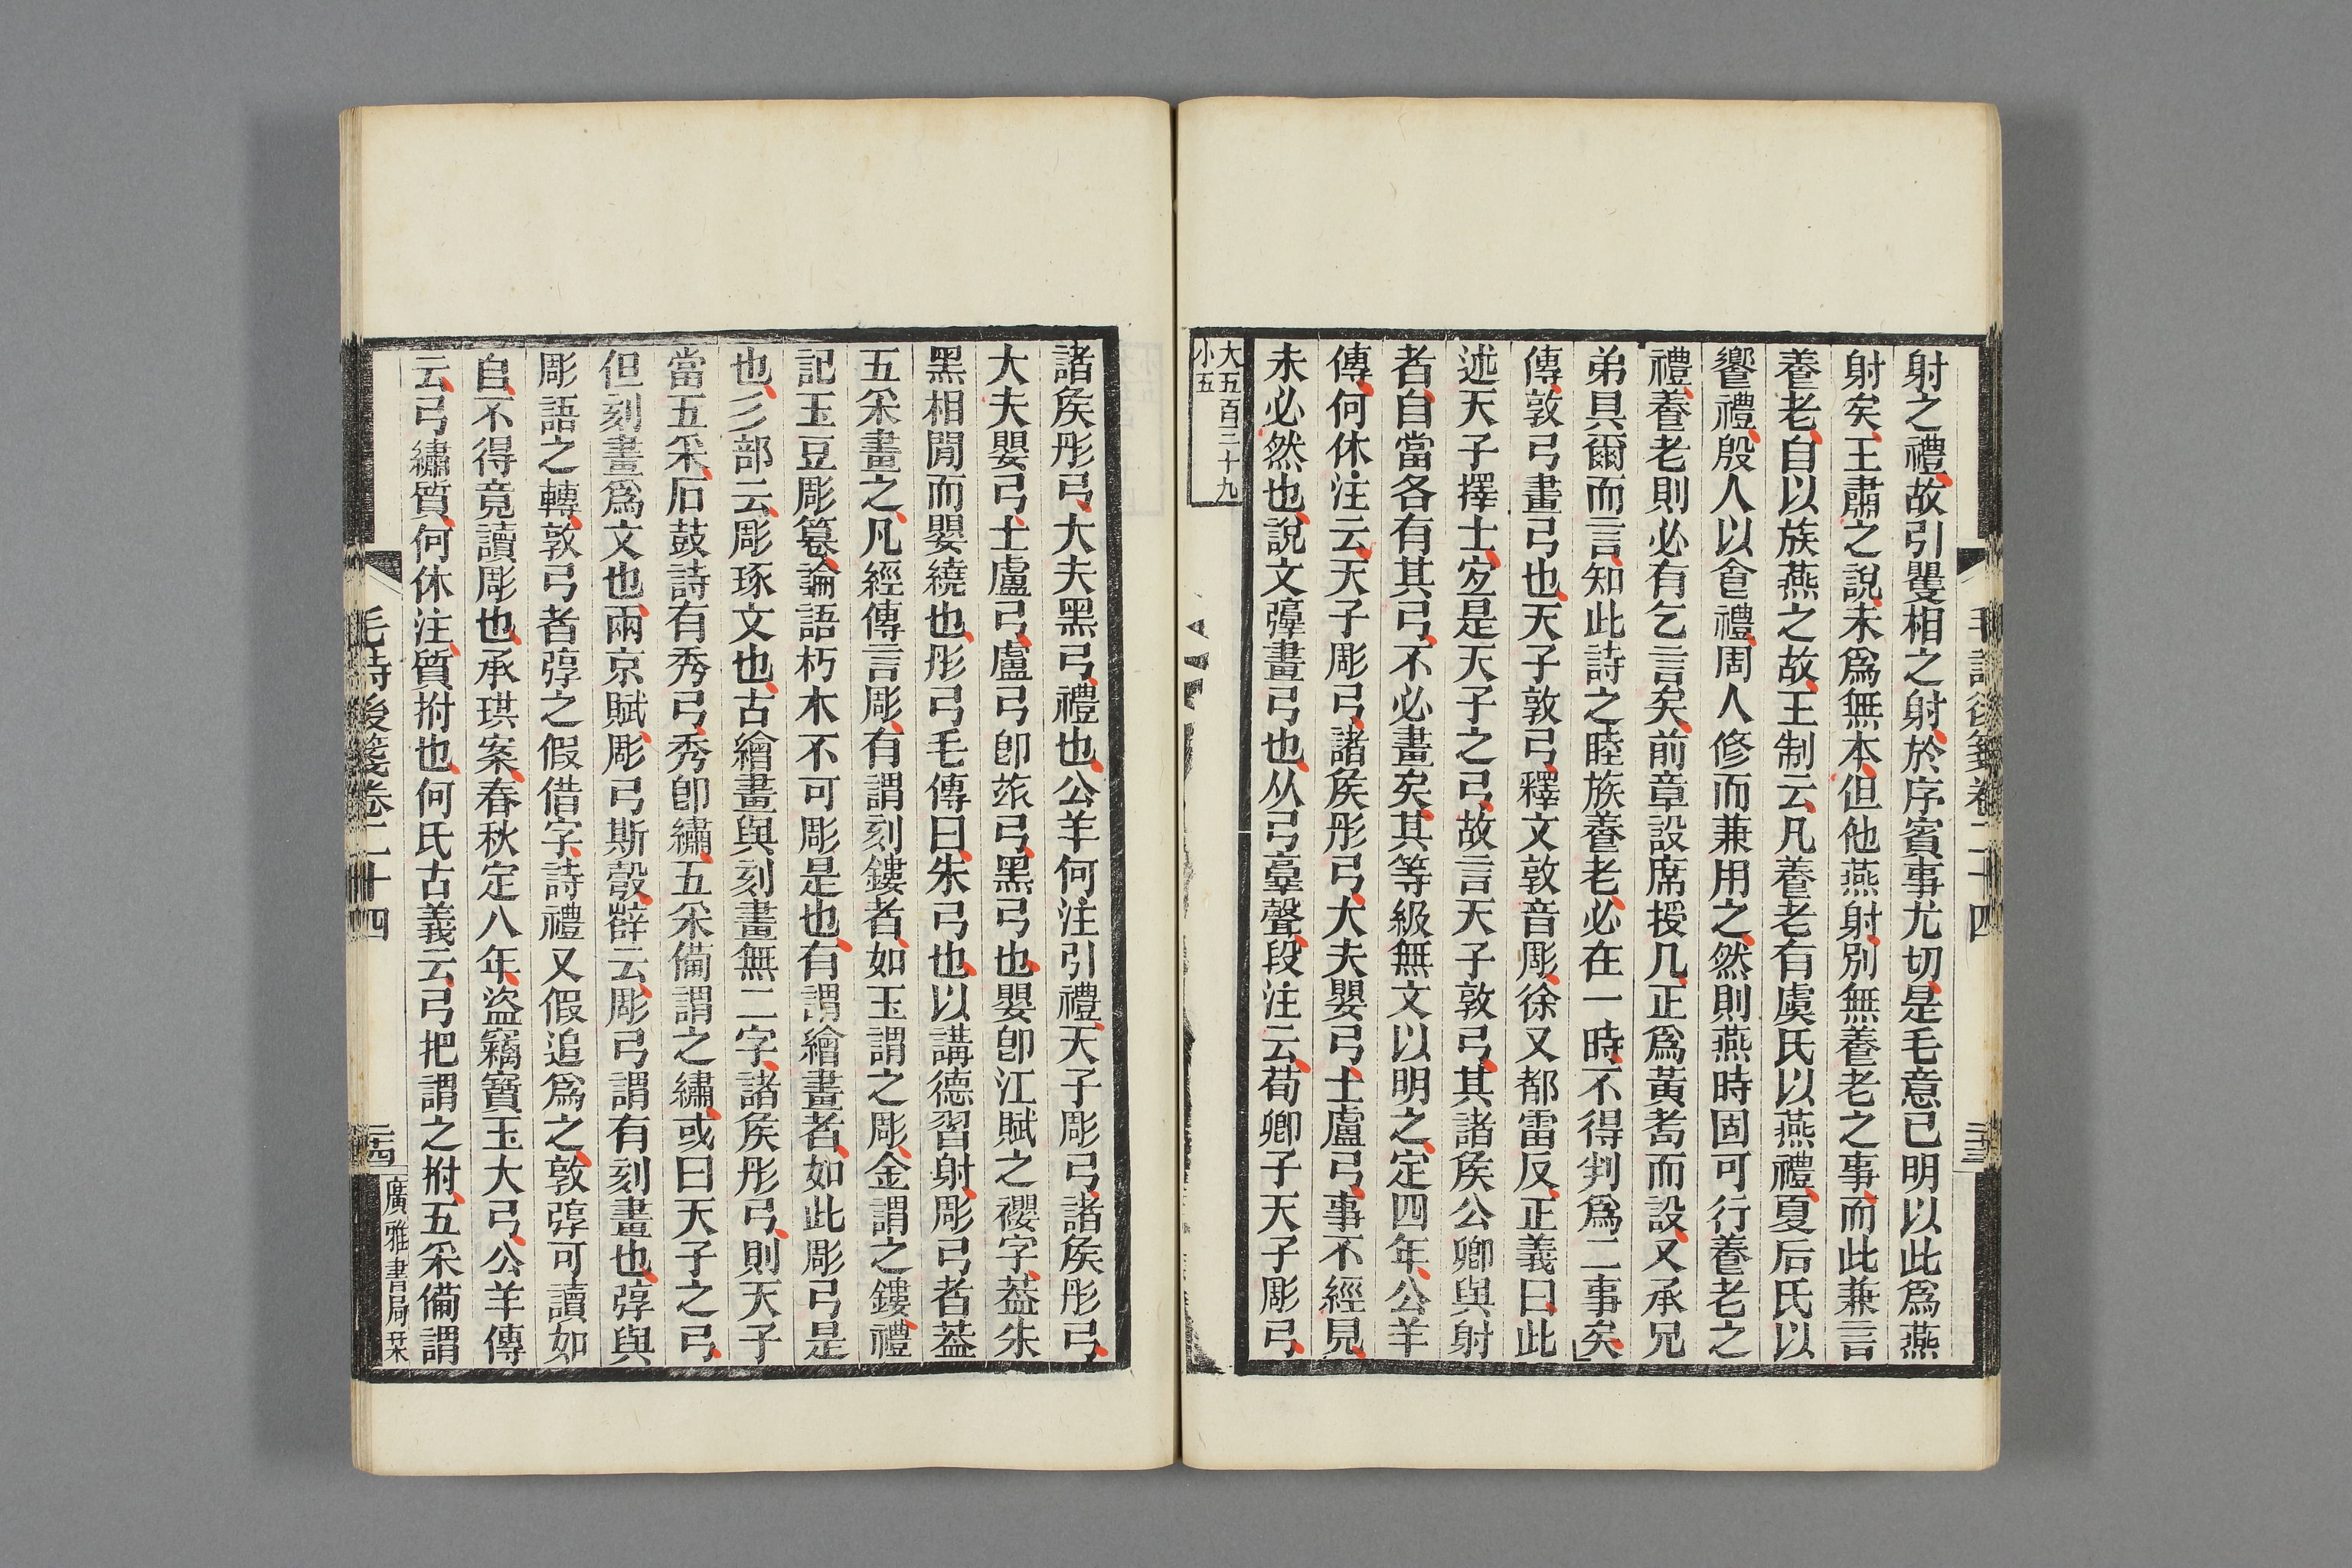 毛詩後箋卷二十四
射之禮故引瞿相之射於序賓事尤切是毛意已明以此爲燕
射矣王肅之說未爲無本但他燕射別無養老之事而此兼言
養老自以族燕之故王制云凡養老有虞氏以燕禮夏后氏以
饗禮殷人以食禮周人修而兼用之然則燕時固可行養老之
禮養老則必有乞言矣前章設席授几正爲黃耇而設又承兄
弟具爾而言知此詩之睦族養老必在一時不得判爲二事矣
傳敦弓畫弓也天子敦弓釋文敦音彫徐又都雷反正義曰此
述天子擇士宐是天子之弓故言天子敦弓其諸矦公卿與射
者自當各有其弓不必畫矣其等級無文以明之定四年公羊
傳何休注云天子彫弓諸矦彤弓大夫嬰弓士盧弓事不經見
未必然也說文弴畫弓也从弓𦎫聲段注云荀卿子天子彫弓
大五百三十九
小五
諸矦彤弓大夫黑弓禮也公羊何注引禮天子彫弓諸矦彤弓
大夫嬰弓士盧弓盧弓卽玈弓黑弓也嬰卽江賦之櫻字葢朱
黑相閒而嬰繞也彤弓毛傳曰朱弓也以講德習射彫弓者葢
五采畫之凡經傳言彫有謂刻鏤者如玉謂之彫金謂之鏤禮
記玉豆彫篹論語朽木不可彫是也有謂繪畫者如此彫弓是
也彡部云彫琢文也古繪畫與刻畫無二字諸矦彤弓則天子
當五采石鼓詩有秀弓秀卽繡五采備謂之繡或曰天子之弓
但刻畫爲文也兩京賦彫弓斯彀薛云彫弓謂有刻畫也弴與
彫語之轉敦弓者弴之假借字詩禮又假追爲之敦弴可讀如
自不得竟讀彫也承珙案春秋定八年盜竊寶玉大弓公羊傳
云弓繡質何休注質拊也何氏古義云弓把謂之拊五采備謂
毛詩後箋卷二十四
二十四
廣雅書局栞